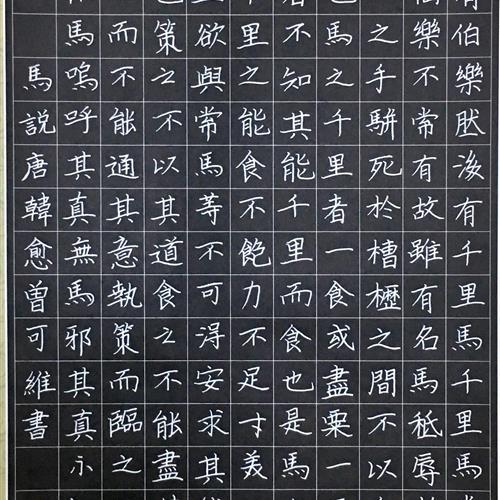 有伯樂然後有千里馬千里馬
樂不常有故雖有名馬祗辱
之手駢死於槽櫪之間不以
也馬之千里者一食或盡粟一
不知其能千里而食也是馬
里之能食不飽力不足才美
欲與常馬等不可得安求其
策之不以其道食之不能盡
而不能通其意執策而臨之
馬嗚呼其真無馬邪其真不
馬説唐韓愈曾可維書